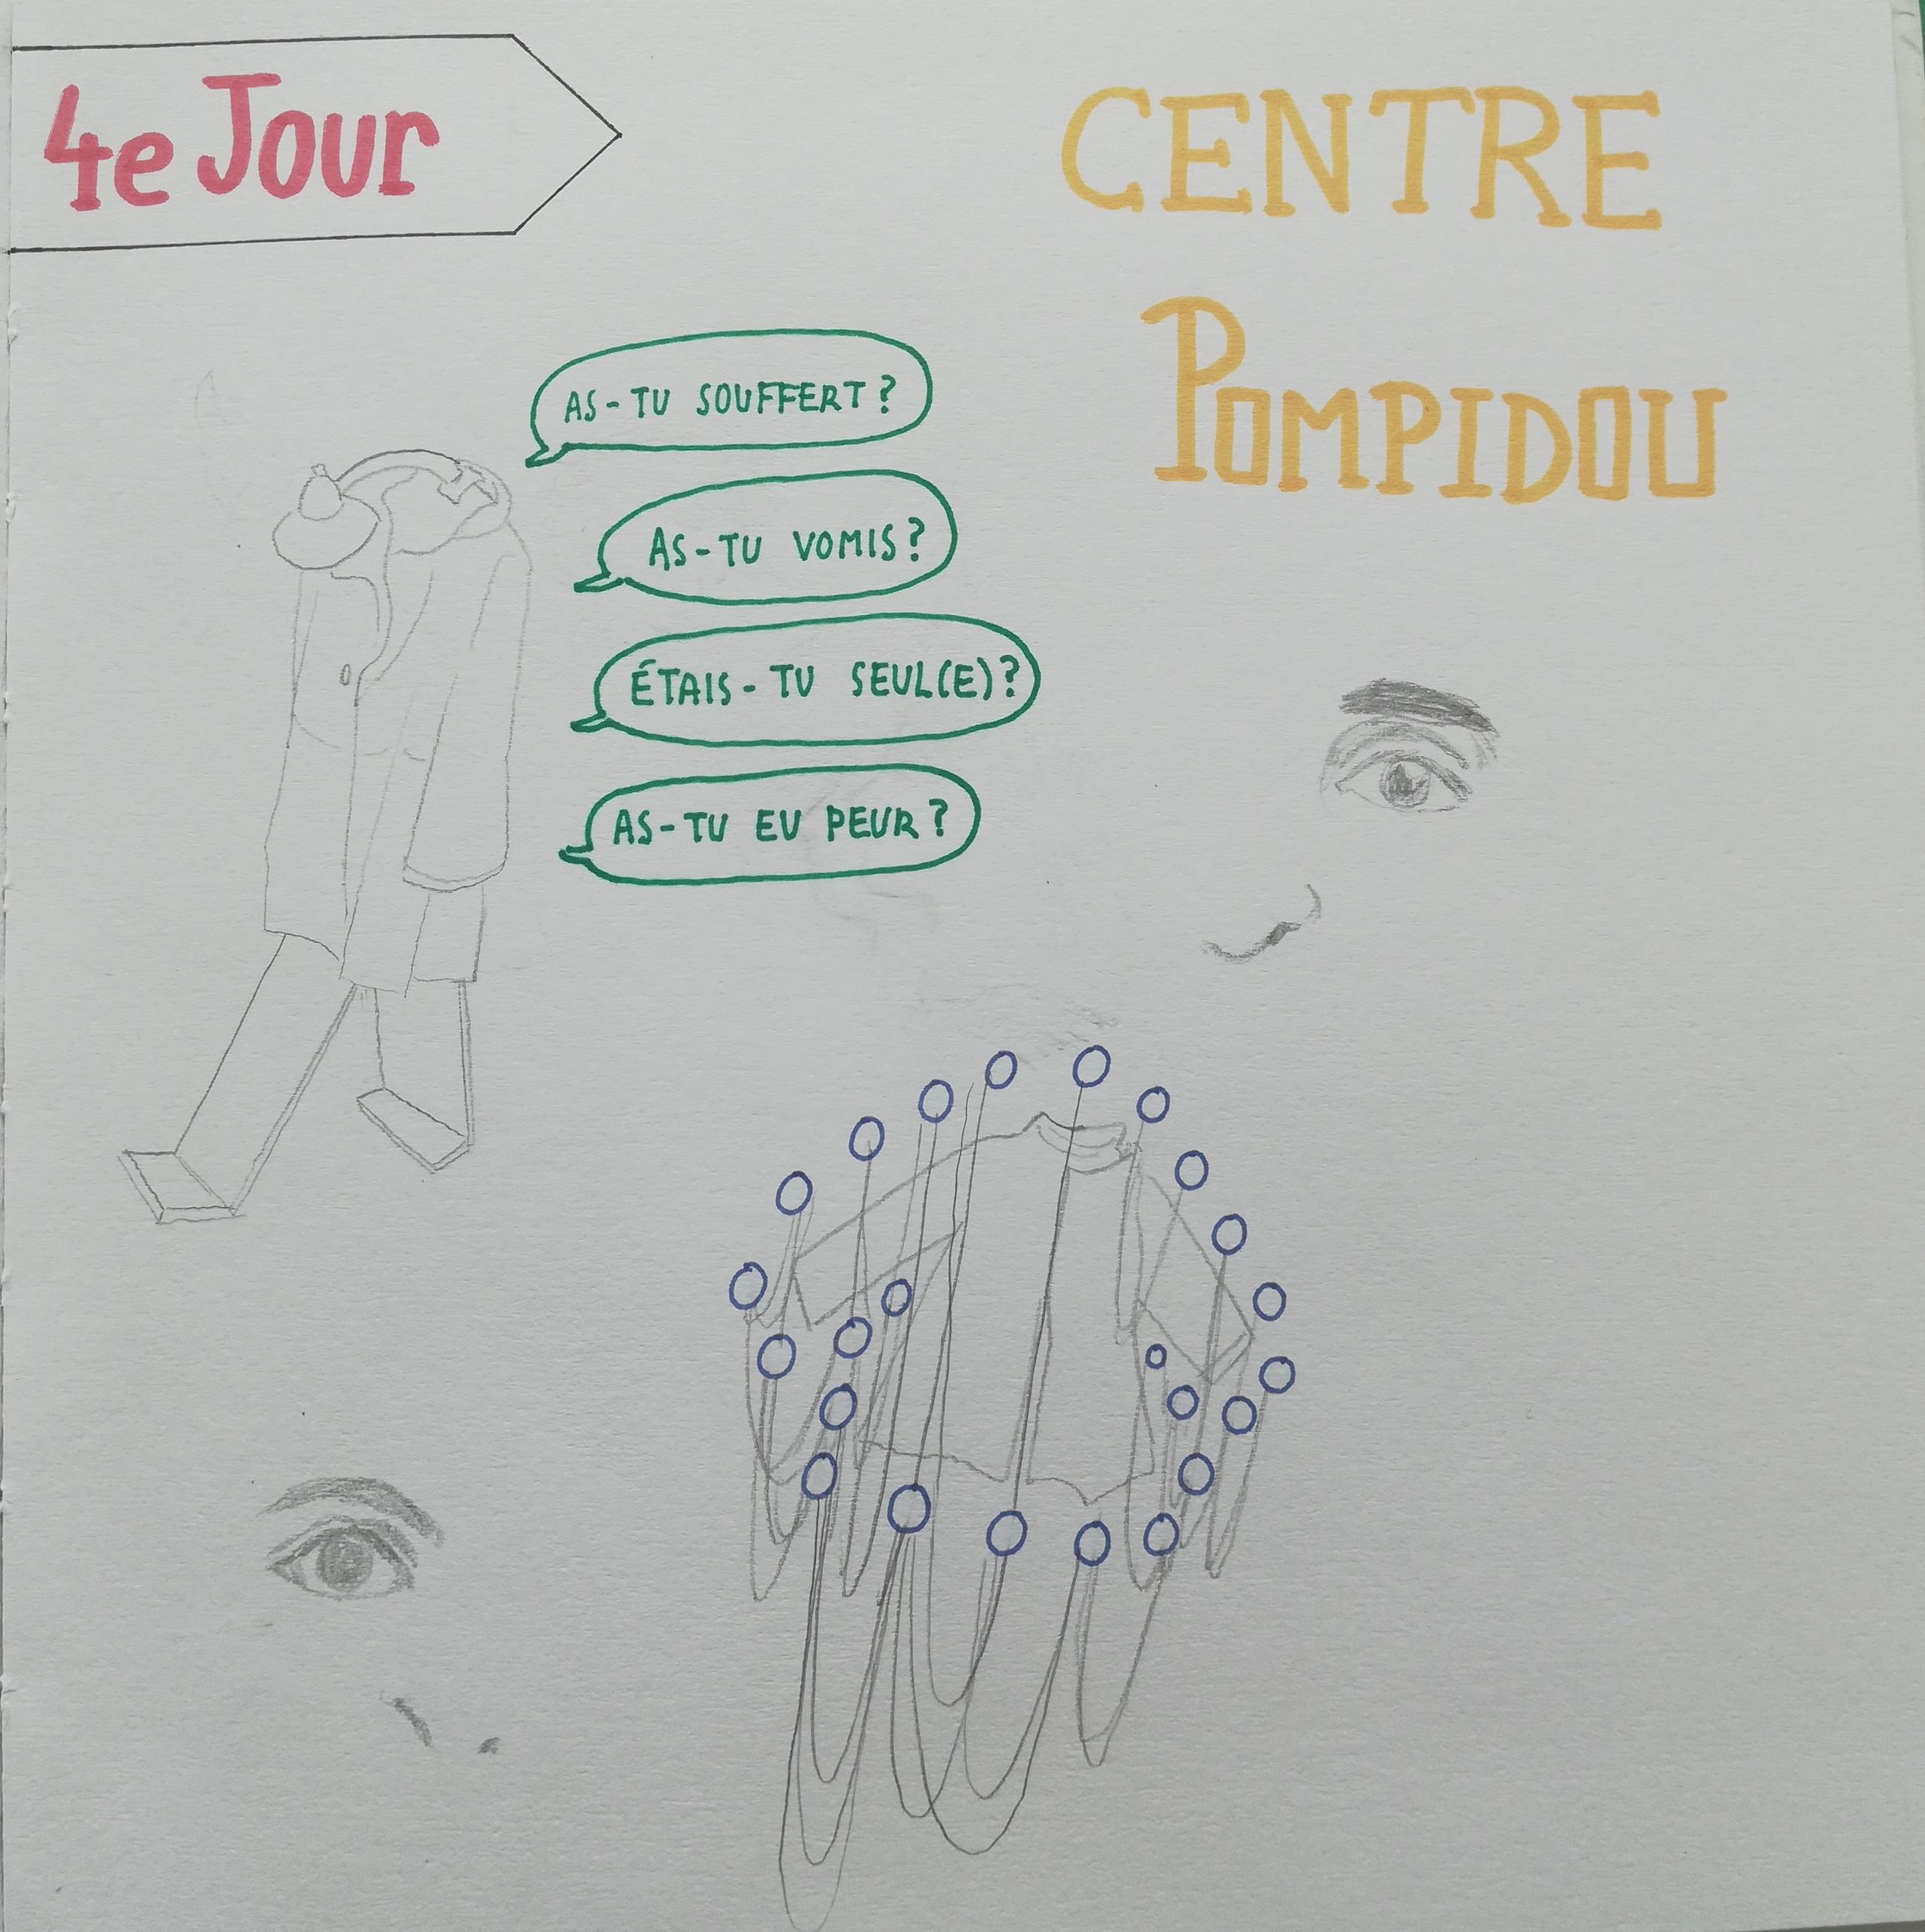 4e Jour
CENTRE
POMPIDOU
AS-TU SOUFFERT ?
AS-TU VOMIS ?
ÉTAIS-TU SEUL(E) ?
AS-TU EU PEUR ?